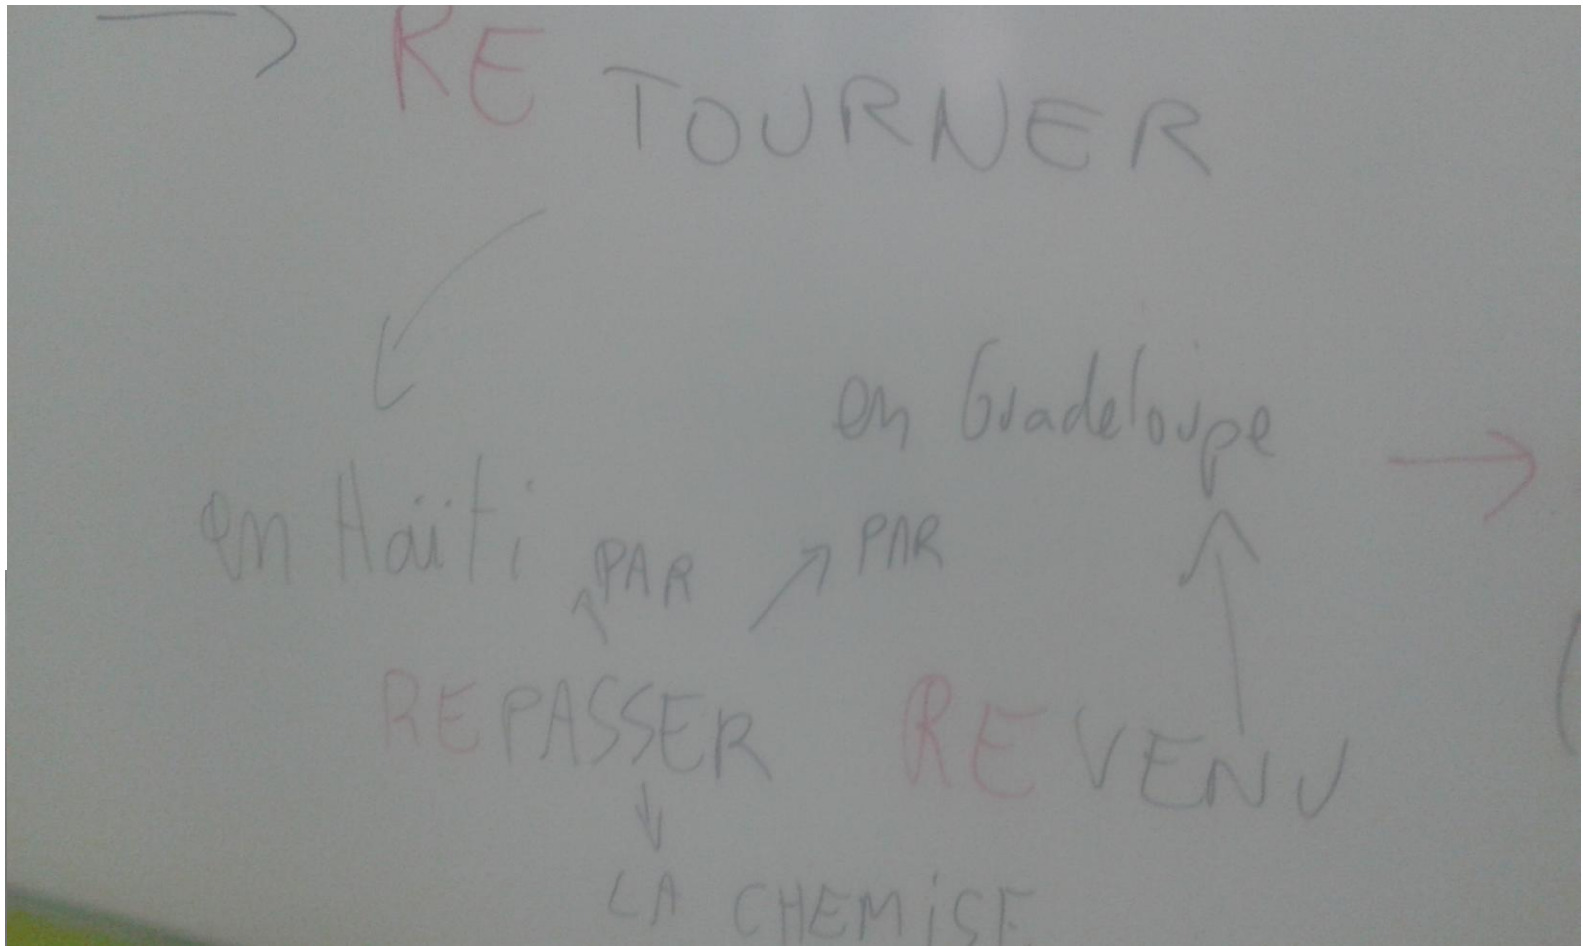 RE TOURNER
en Guadeloupe
en Haïti
PAR
PAR
REPASSER
REVENU
LA CHEMiSE